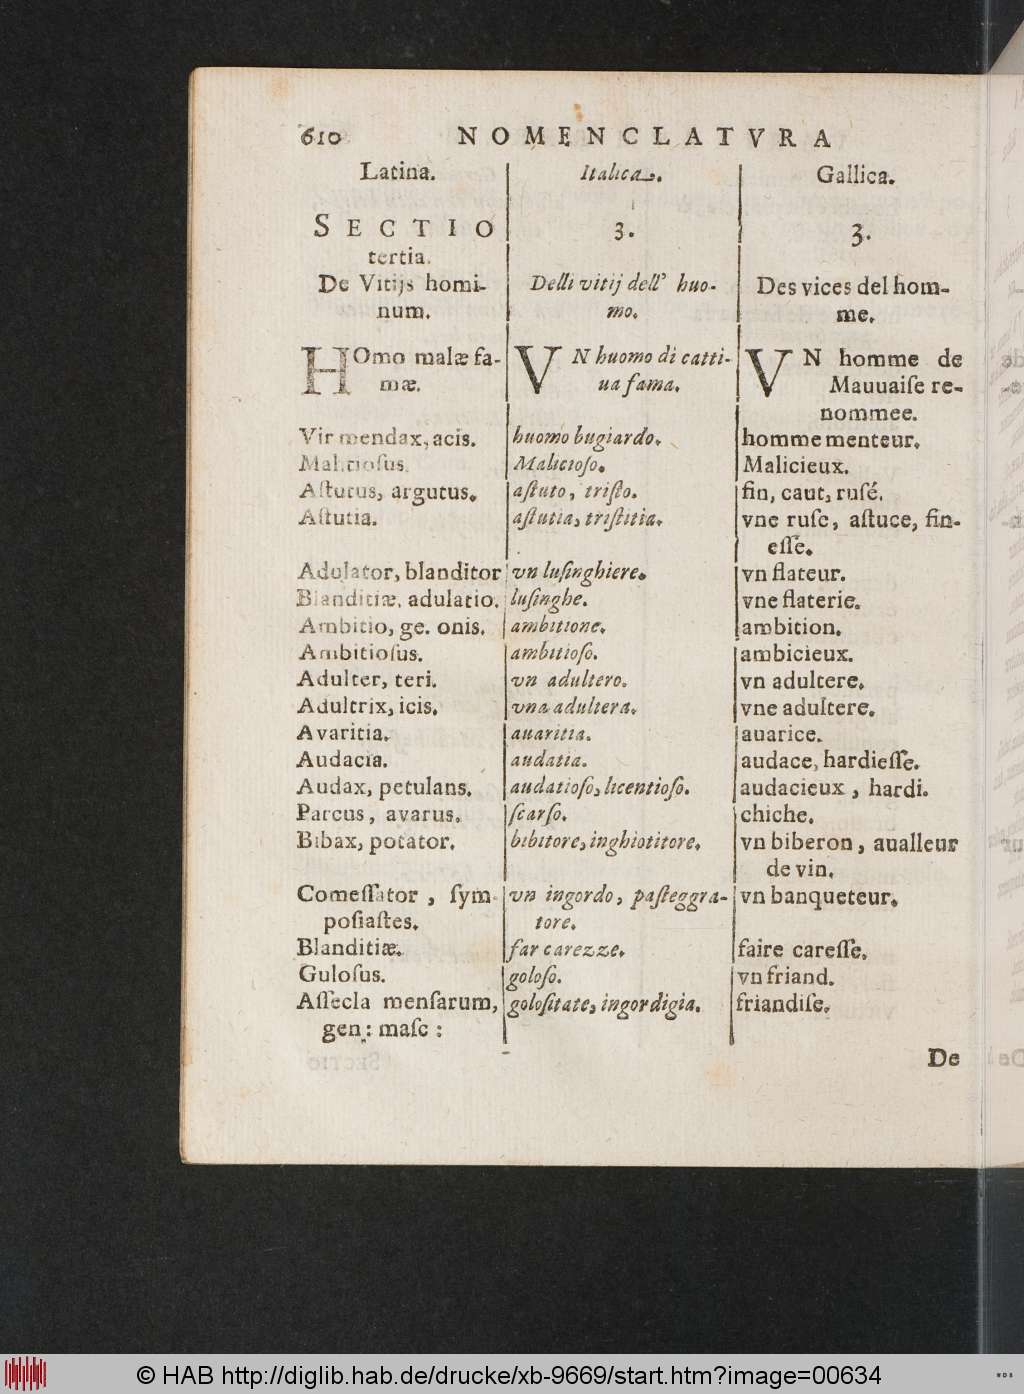 610 NOMENCLATVRA
Latina. Italica. Gallica.
SECTIO 3. 3.
tertia.
De Vitijs homi- Delli vitij dell' huo- Des vices del hom-
num. mo. me.
HOmo malæ fa- VN huomo di catti- VN homme de
mæ. ua fama. Mauuaiſe re-
nommee.
Vir mendax, acis. huomo bugiardo. homme menteur.
Malitioſus. Malicioſo. Malicieux.
Aſtutus, argutus. aſtuto, triſto. fin, caut, ruſé.
Aſtutia. aſtutia, triſtitia. vne ruſe, aſtuce, fin-
eſſe.
Adulator, blanditor vn luſinghiere. vn flateur.
Blanditiæ, adulatio. luſinghe. vne flaterie.
Ambitio, ge. onis. ambitione. ambition.
Ambitioſus. ambitioſo. ambicieux.
Adulter, teri. vn adultero. vn adultere.
Adultrix, icis. vna adultera. vne adultere.
Avaritia. auaritia. auarice.
Audacia. audatia. audace, hardieſſe.
Audax, petulans. audatioſo, licentioſo. audacieux, hardi.
Parcus, avarus. ſcarſo. chiche.
Bibax, potator. bibitore, inghiotitore. vn biberon, aualleur
de vin.
Comeſſator, ſym- vn ingordo, paſteggra- vn banqueteur.
poſiaſtes. tore.
Blanditiæ. far carezze. faire careſſe.
Guloſus. goloſo. vn friand.
Aſſecla menſarum, goloſitate, ingordigia. friandiſe.
gen: maſc:
De
© HAB http://diglib.hab.de/drucke/xb-9669/start.htm?image=00634